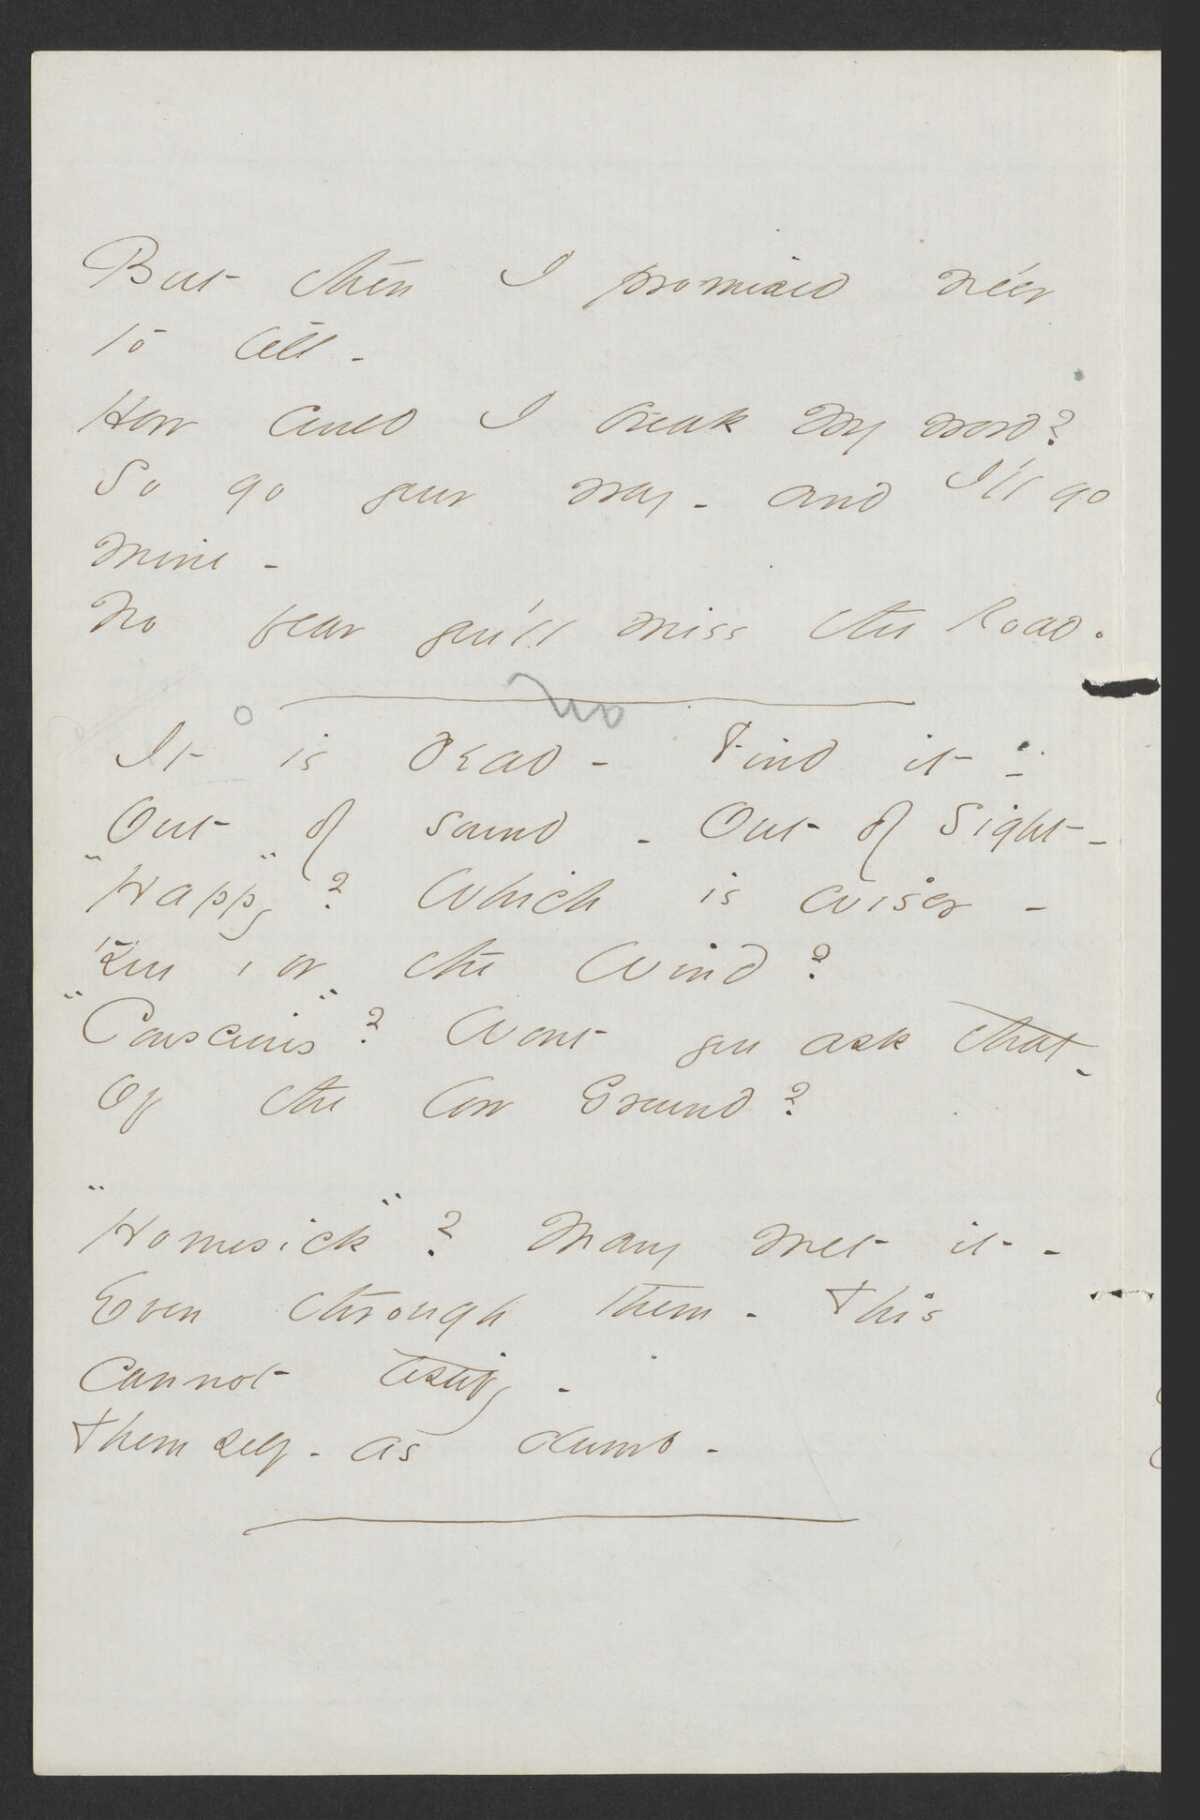 But then I promised ne'er
to tell -
How could I break my word?
So go your way - and I'll go
mine -
No fear you'll miss the Road.
No
It is dead - Find it -
Out of Sound - Out of Sight -
"Happy"? Which is wiser -
You, or the Wind?
"Conscious"? Wont you ask that -
Of the low Ground?
"Homesick"? Many met it -
Even through them - This
Cannot testify -
Themself - as dumb -